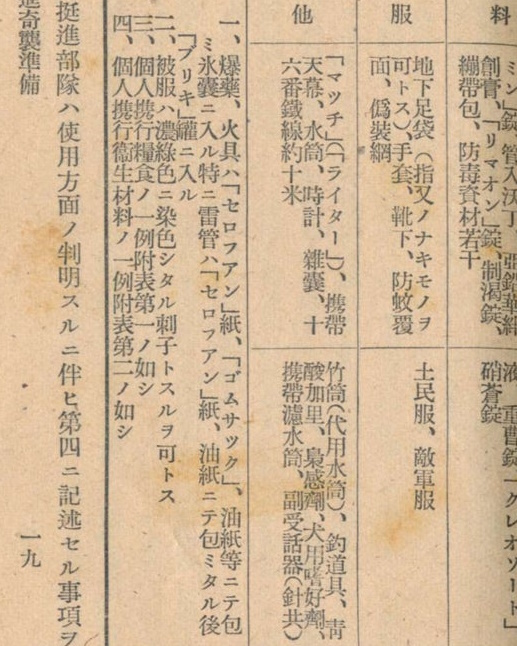 料
ミン」錠、管入沃丁、亞鉛華絆
創膏、「リマオン」錠、制渴錠、
繃帶包、防毒資材若干
液、重曹錠「クレオソート」
硝蒼錠
服
地下足袋(指又ノナキモノヲ
可トス)、手套、靴下、防蚊覆
面、僞裝網
土民服、敵軍服
他
「マッチ」(「ライター」)、携帶
天幕、水筒、時計、雜囊、十
六番鐵線約十米
竹筒(代用水筒)、釣道具、靑
酸加里、梟感劑、犬用嗜好劑、
携帶濾水筒、副受話器(針共)
一、爆藥、火具ハ「セロフアン」紙、「ゴムサツク」、油紙等ニテ包
ミ氷囊ニ入ル特ニ雷管ハ「セロフアン」紙、油紙ニテ包ミタル後
「ブリキ」罐ニ入ル
二、被服ハ濃綠色ニ染色シタル刺子トスルヲ可トス
三、個人携行糧食ノ一例附表第一ノ如シ
四、個人携行衞生材料ノ一例附表第二ノ如シ
挺進部隊ハ使用方面ノ判明スルニ伴ヒ第四ニ記述セル事項ヲ
進奇襲準備
一九